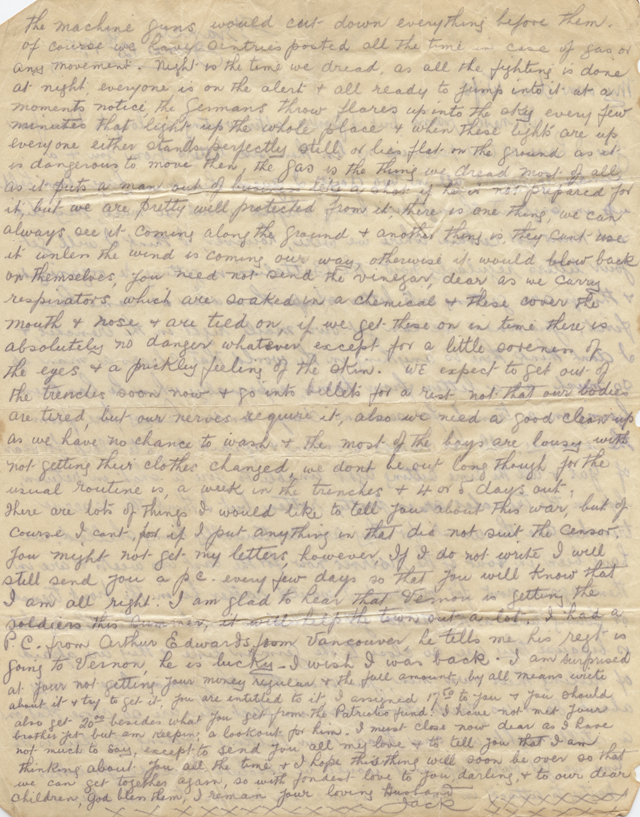 the machine guns would cut down everything before them.
of course we have sentries posted all the time in case of gas or
any movement. Night is the time we dread, as all the fighting is done
at night, everyone is on the alert & all ready to jump into it at a
moments notice the Germans throw flares up into the sky every few
minutes that light up the whole place & when these lights are up
everyone either stands perfectly still or lies flat on the ground as it
is dangerous to move then, the gas is the thing we dread most of all,
as it puts a man out of business like a shot if he is not prepared for
it, but we are pretty well protected from it, there is one thing we can
always see it coming along the ground & another thing is they cant use
it unless the wind is coming our way, otherwise it would blow back
on themselves, you need not send the vinegar, dear as we carry
respirators, which are soaked in a chemical & these cover the
mouth & nose & are tied on, if we get these on in time there is
absolutely no danger whatever except for a little soreness of
the eyes & a prickly feeling of the skin. We expect to get out of
the trenches soon now & go into billets for a rest not that our bodies
are tired, but our nerves require it, also we need a good clean up
as we have no chance to wash & the most of the boys are lousy with
not getting their clothes changed, we dont be out long though for the
usual routine is, a week in the trenches & 4 or 5 days out.
There are lots of things I would like to tell you about this war, but of
course I cant, for if I put anything in that did not suit the censor,
you might not get my letters, however, If I do not write I will
still send you a p.c. every few days so that you will know that
I am all right. I am glad to hear that Vernon is getting the
soldiers this summer, it will help the town out a lot. I had a
P.C. from Arthur Edwards from Vancouver he tells me his regt is
going to Vernon, he is lucky. I wish I was back. I am surprised
at your not getting your money regular & the full amount, by all means write
about it & try to get it, you are entitled to it, I assigned to you & you should
also get 20 besides what you get from the Patriotic fund. I have not met your
brother yet but am keeping a lookout for him. I must close now dear as I have
not much to say, except to send you all my love & to tell you that I am
thinking about you all the time & I hope this thing will soon be over so that
we can get together again, so with fondest love to you darling, & to our dear
children, God bless them, I remain your loving Husband
Jack